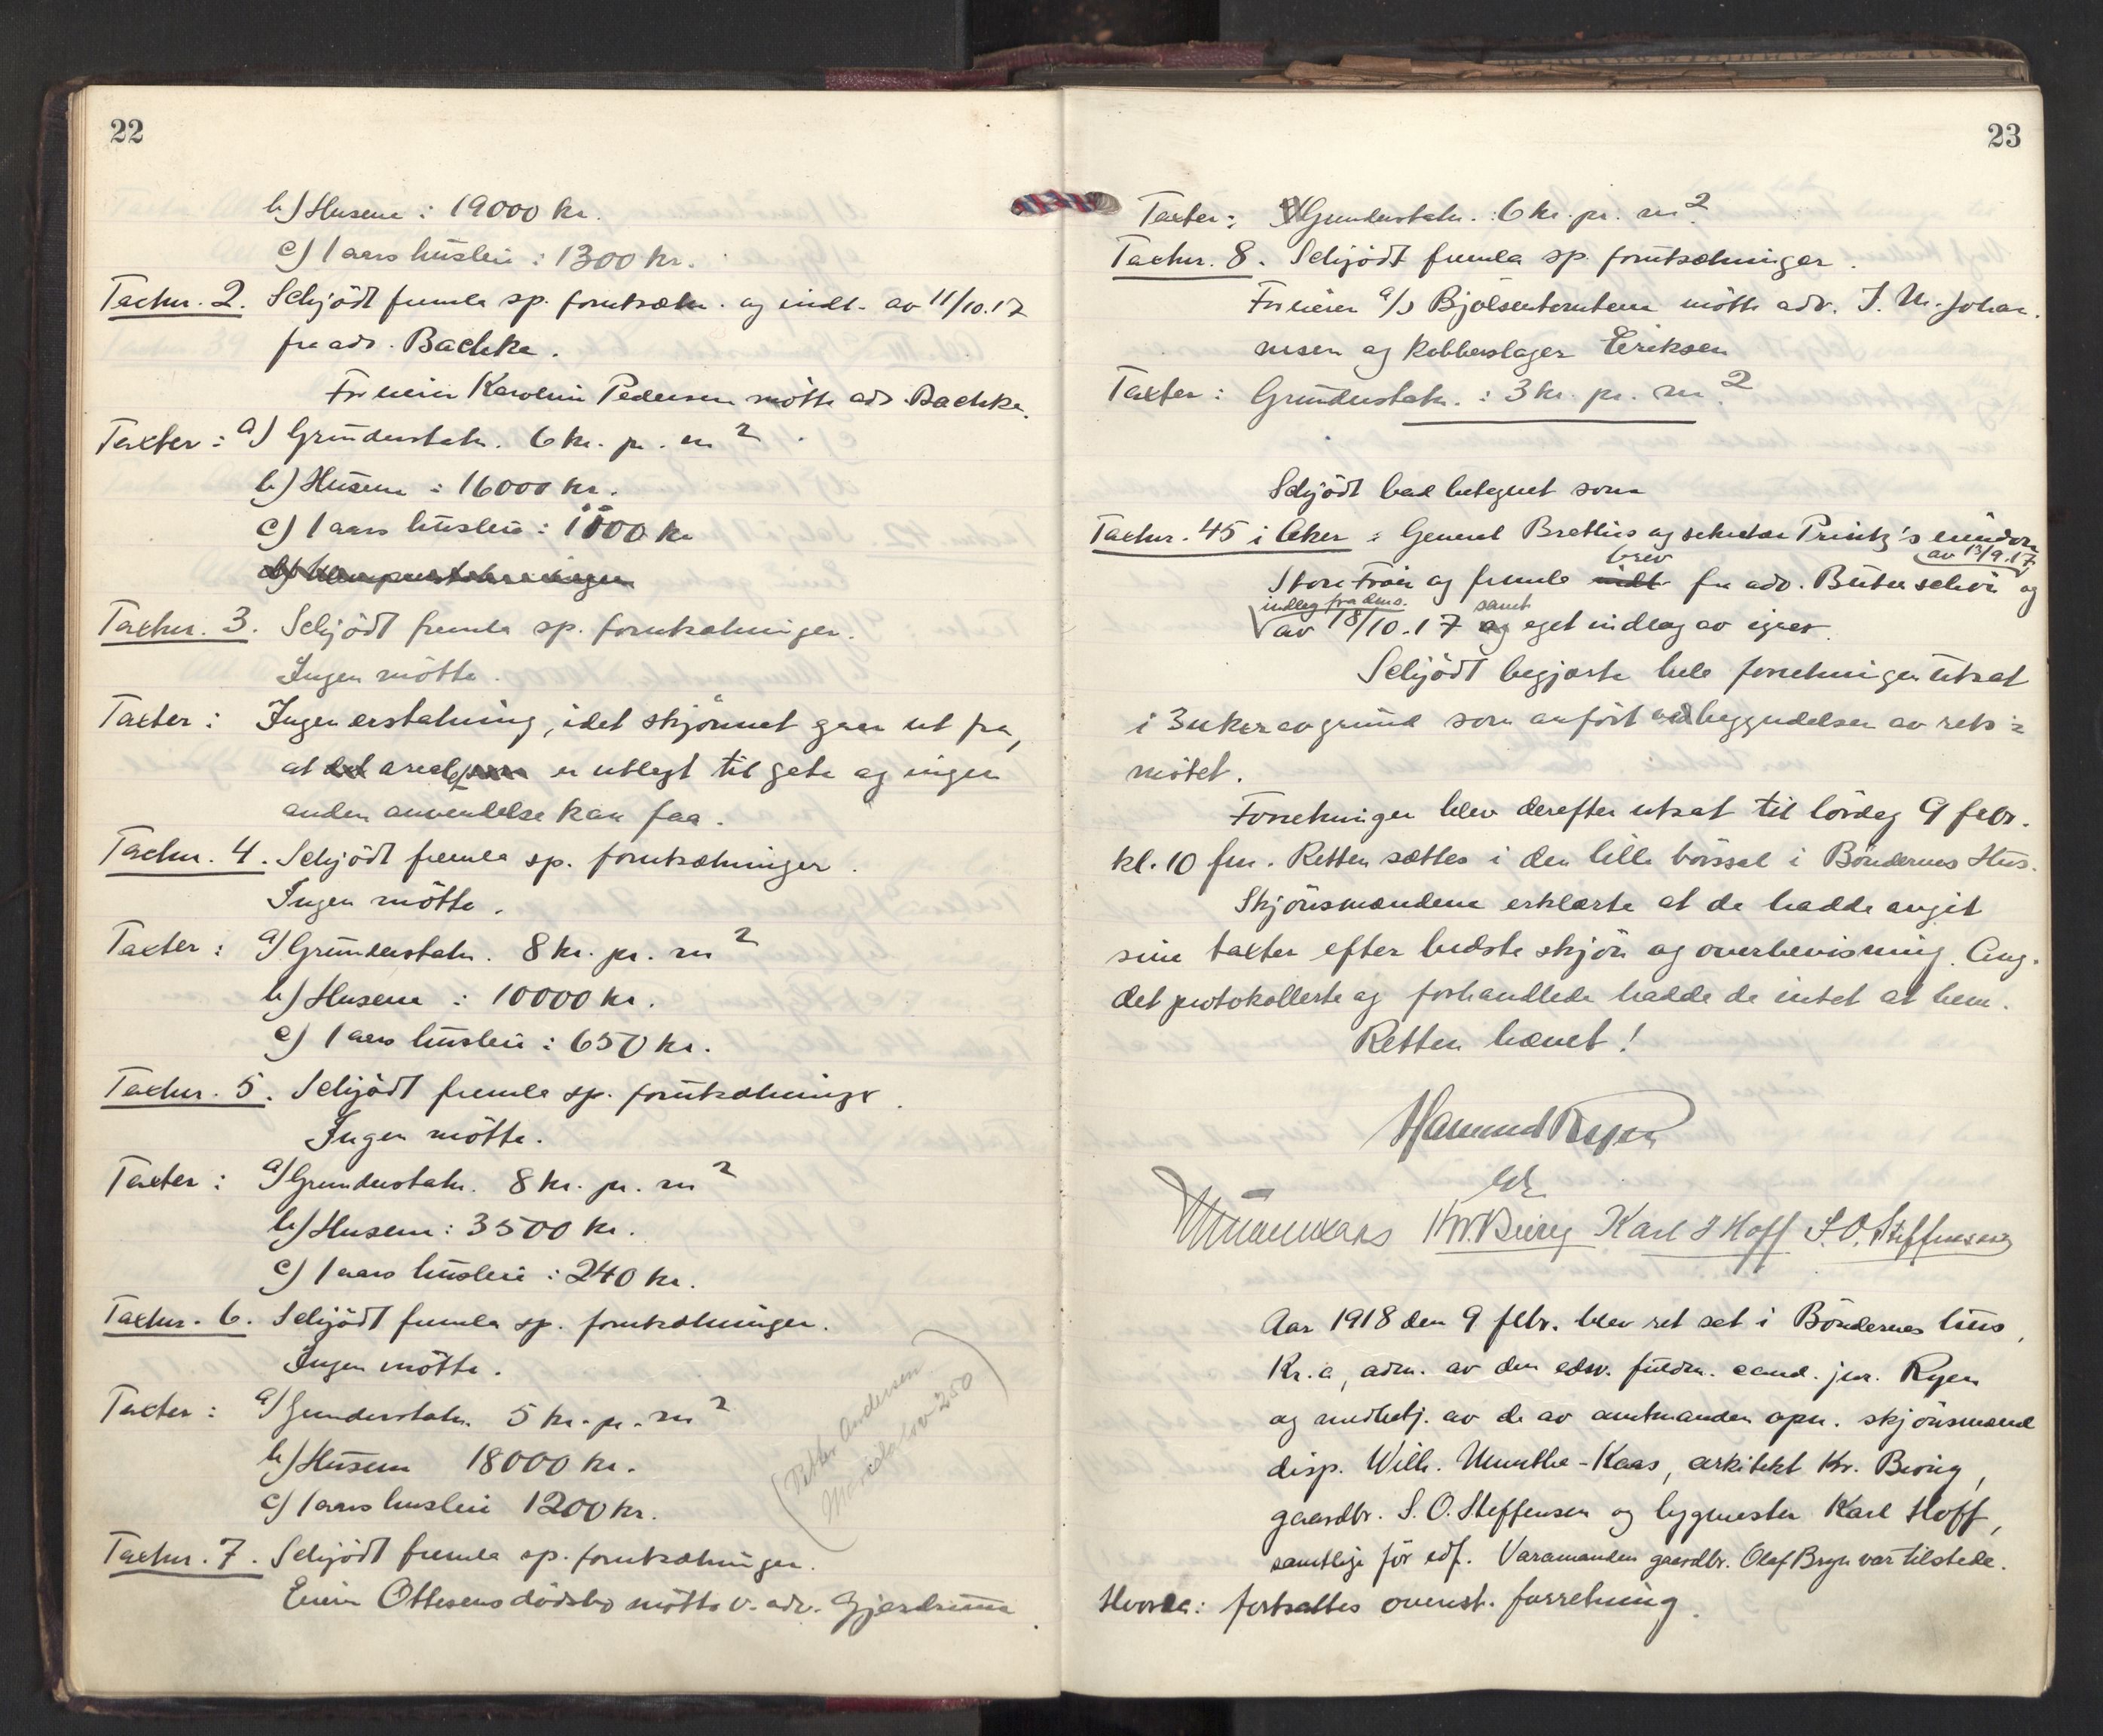 22
b) Husene : 19000 kr.
c) 1 aars husleie : 1300 kr.
Taxtnr. 2. Schjödt fremla sp. forutsætn. og indl. av 11/10.17
fra adv. Bachke.
For eieren Karoline Pedersen mötte adv. Bachke.
Taxter : a) Grunderstatn. 6 kr. pr. m2.
b) Husene : 16000 kr.
c) 1 aars husleie : 1100 kr
Taxtnr. 3. Schjödt fremla sp. forutsætninger.
Ingen mötte.
Taxter : Ingen erstatning, idet skjönnet gaar ut fra,
at arealet er utlagt til gate og ingen
anden anvendelse kan faa.
Taxtnr. 4. Schjödt fremla sp. forutsætninger.
Ingen mötte.
Taxter : a) Grunderstatn. 8 kr. pr. m2
b) Husene : 10000 kr.
c) 1 aars husleie : 650 kr.
Taxtnr. 5. Schjödt fremla sp. forutsætninger.
Ingen mötte.
Taxter : a) Grunderstatn. 8 kr. pr. m2
b) Husene : 3500 kr.
c) 1 aars husleie : 240 kr.
Taxtnr. 6. Schjödt fremla sp. forutsætninger.
Ingen mötte.
Taxter : a) Grunderstatn. 5 kr. pr. m2
b) Husene 18000 kr.
c) 1 aars husleie 1200 kr.
(Petter Andersen
Maridalsv 250)
Taxtnr. 7. Schjödt fremla sp. forutsætninger.
Eieren Ottesens dödsbo mötte v. adv. Gjerdrum.
23
Taxter : Grunderstatn. : 6 kr. pr. m2.
Taxtnr. 8. Schjödt fremla sp. forutsætninger.
For eieren a/s Bjölsentomtene mötte adv. J. M. Johan-
nesen og kobberslager Eriksen
Taxter : Grunderstatn. : 3 kr. pr. m2.
Schjödt bad betegnet som
Taxtnr. 45 i Aker : General Bratlies og sekretær Printz's eiendom
Store Fröen og fremla brev fra adv. Butenschön av 13/9.17 og
indlæg fra dmo. av 18/10.17 samt eget indlæg av igaar.
Schjödt begjærte hele forretningen utsat
i 3 uker av grund som anfört ved begyndelsen av rets=
mötet.
Forretningen blev derefter utsat til lördag 9 febr.
kl. 10 fm. Retten sættes i den lille börssal i Böndernes Hus.
Skjönsmændene erklærte at de hadde avgit
sine taxter efter bedste skjön og overbevisning. Ang.
det protokollerte og forhandlede hadde de intet at bem.
Retten hævet!
Hammond Ryen
edf.
W Munthe Kaas Kr. Biong Karl J Hoff S. O. Steffensen
Aar 1918 den 9 febr. blev ret sat i Böndernes hus,
Kr.a, adm. av den edsv. fuldm. cand. jur. Ryen
og medbetj. av de av amtmanden opn. skjönsmænd
disp. Wilh. Munthe-Kaas, arkitekt Kr. Biong,
gaardbr. S. O. Steffensen og bygmester Karl Hoff,
samtlige för edf. Varamanden gaardbr. Olaf Bryn var tilstede.
Hvorda : fortsattes ovenst. forretning.